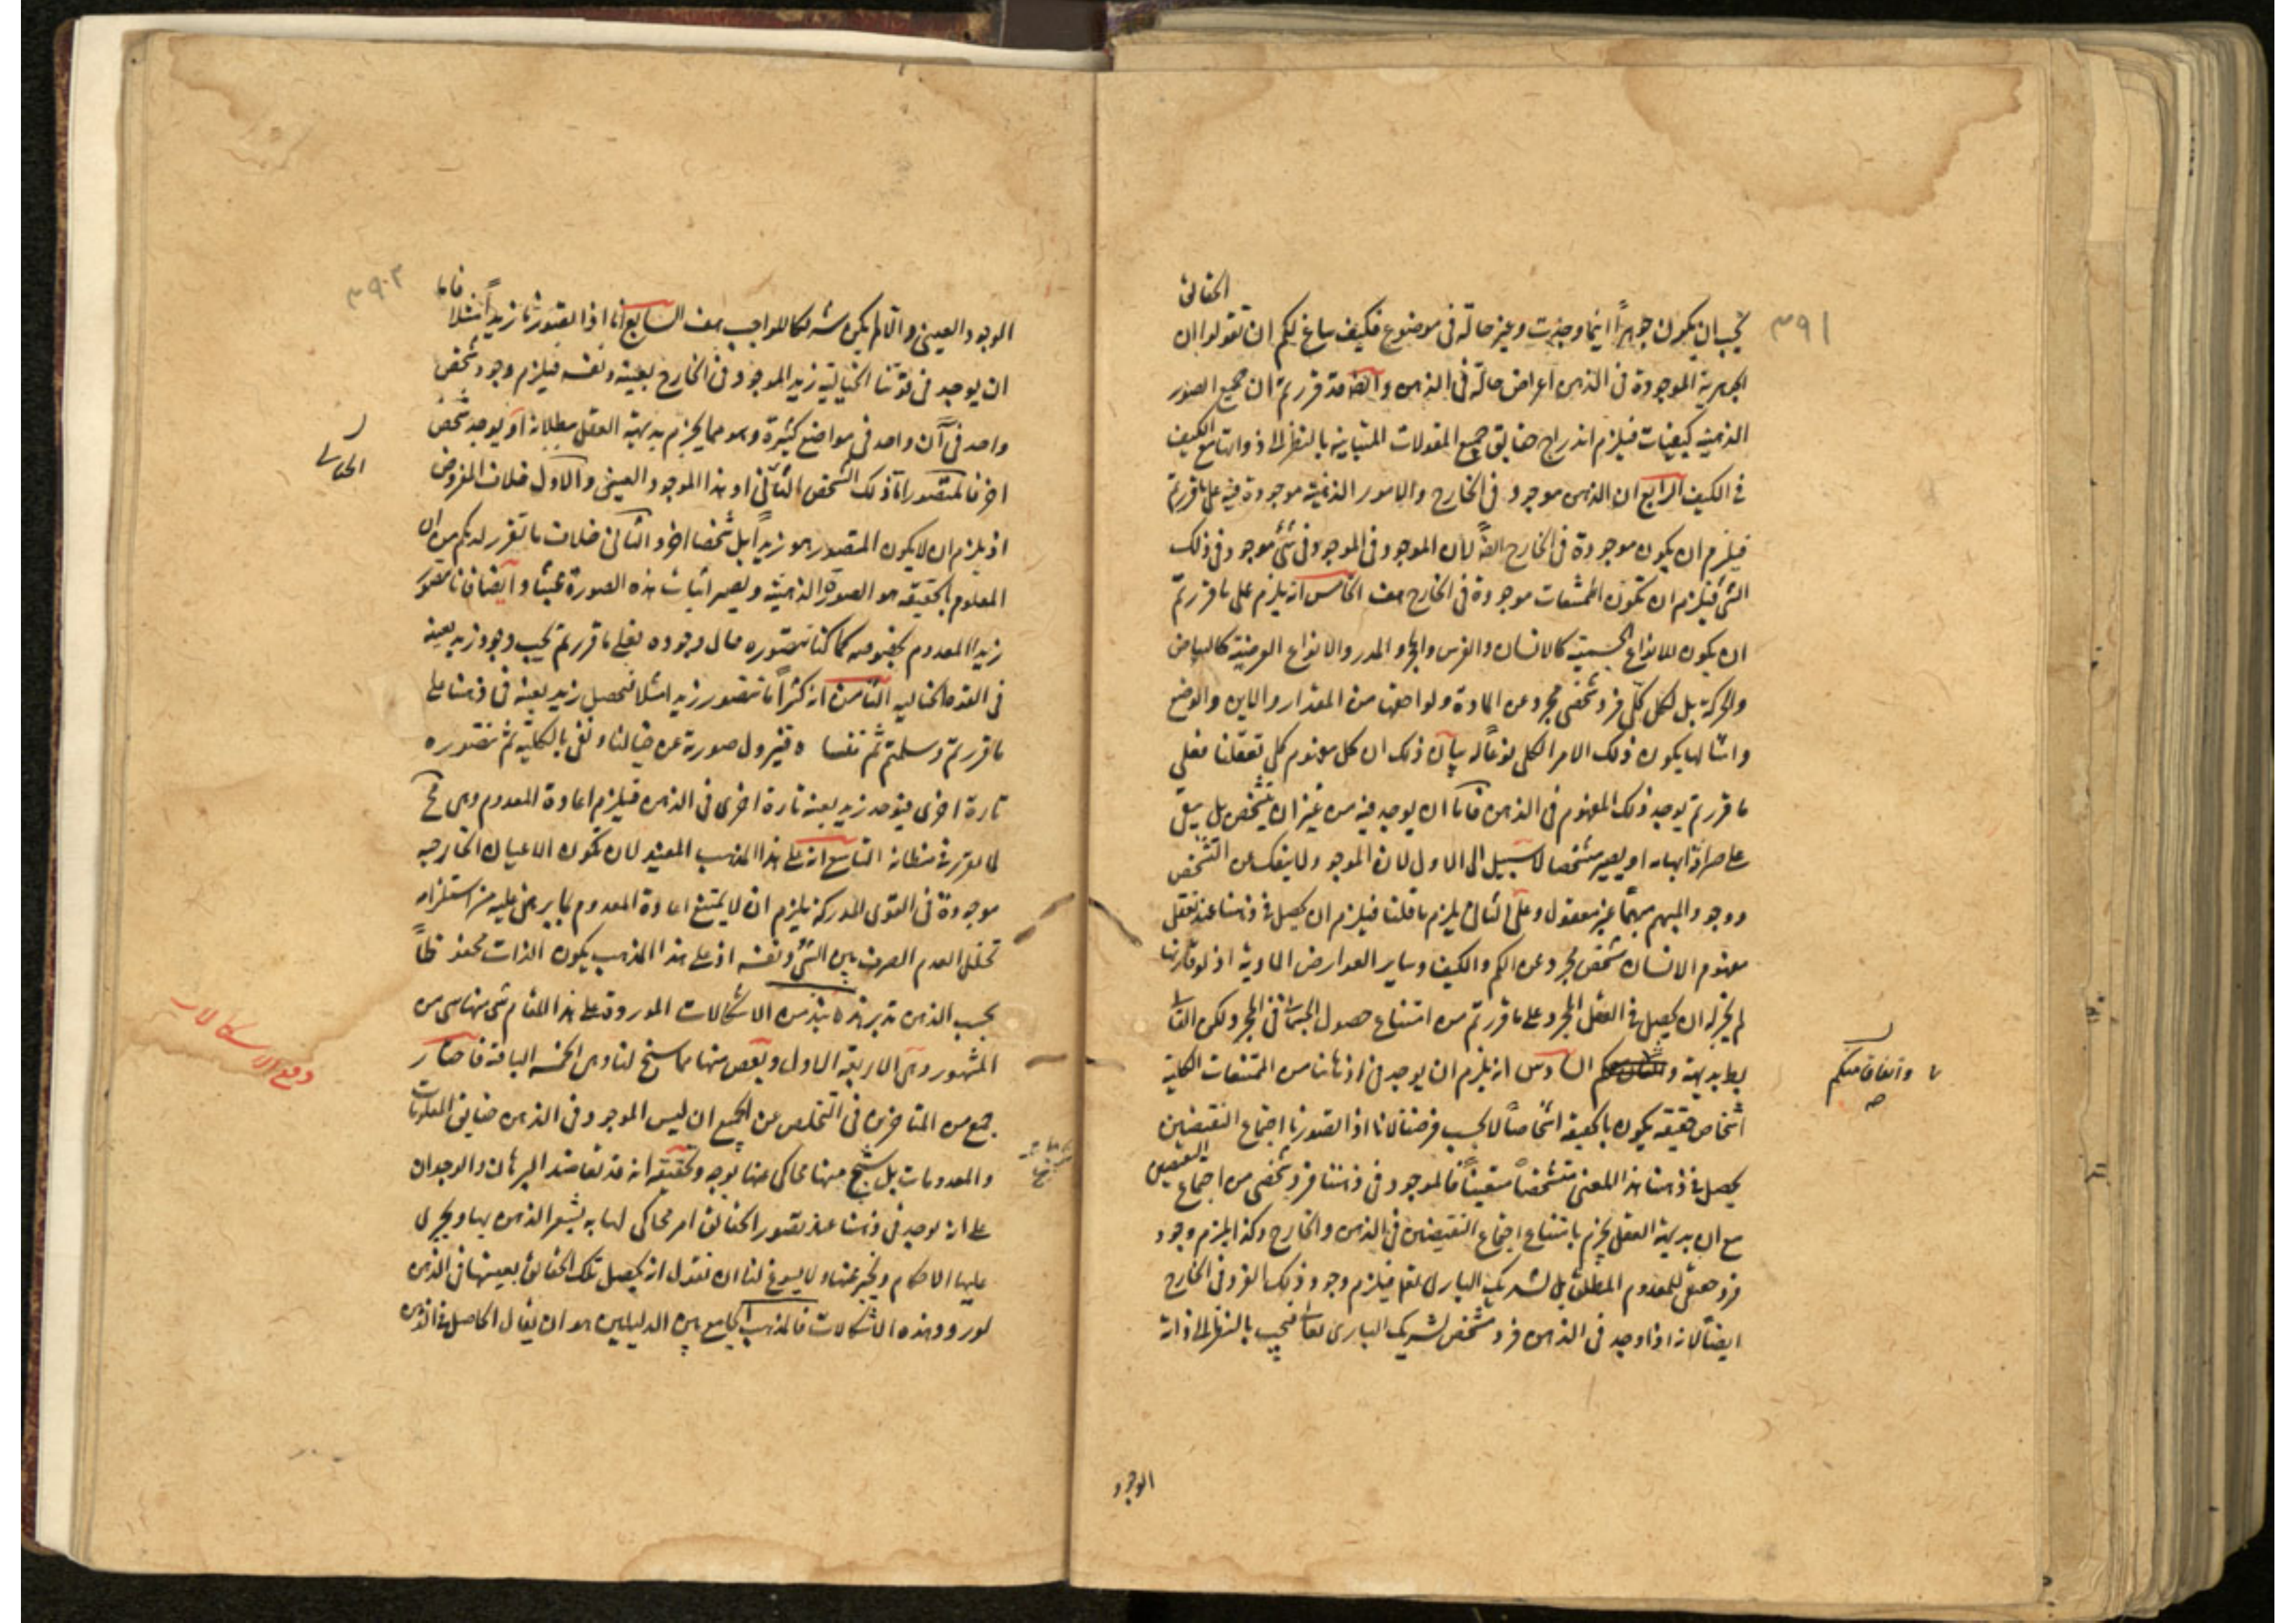 ٣٩١
الحقائق
يجب ان يكون جوهراً اينما وجدت وغير حالّة فى موضوع فكيف ساغ لكم ان تقولوا ان
الجوهرية الموجودة فى الذهن اعراض حالّة فى الذهن وايضا قد قررتم ان جميع الصور
الذهنية كيفيات فيلزم اندراج حقايق جميع المقولات المتباينة بالنظر الى ذواتها مع الكيف
فى الكيف الرابع ان الذهن موجود فى الخارج والامور الذهنية موجودة فيه على ما قررتم
فيلزم ان يكون موجودة فى الخارج ايضاً لان الموجود فى الموجود فى شئ موجود فى ذلك
الشئ فيلزم ان تكون الممتنعات موجودة فى الخارج هف الخامس انه يلزم على ما قررتم
ان يكون للانواع الجسمية كالانسان والفرس والحجر والمدر والانواع العرضية كالبياض
والحركة بل لكل كلّى فرد شخصى مجرد عن المادة ولواحقها من المقدار والاين والوضع
وامثالها يكون ذلك الامر الكلى نوعاً له بيان ذلك ان كل مفهوم كلى تعقلنا فعلى
ما قررتم يوجد ذلك المفهوم فى الذهن فاما ان يوجد فيه من غير ان يتشخص بل يبقى
على صرافة ابهامه او يصير متشخصا لا سبيل الى الاول لان الموجود لا ينفك عن التشخص
ووجود المبهم مبهماً غير معقول وعلى الثانى يلزم ما قلنا فيلزم ان يحصل فى ذهننا عند تعقل
مفهوم الانسان شخص مجرد عن الكم والكيف وساير العوارض المادية اذ لو قارنها
لم يجز له ان يحصل فى العقل المجرد على ما قررتم من امتناع حصول الجسمانى فى المجرد لكن التالى
بط بديهة السادس انه يلزم ان يوجد فى اذهاننا من الممتنعات الكلية
واتفاقا منكم
صح
اشخاص حقيقة يكون بالحقيقة اشخاصاً لا بحسب فرضنا لانا اذا تصورنا اجتماع النقيضين
يحصل فى ذهننا هذا المعنى متشخصاً متعيناً فالموجود فى ذهننا فرد شخصى من اجتماع النقيضين
مع ان بديهة العقل يجزم بامتناع اجتماع النقيضين فى الذهن والخارج وكذا يلزم وجود
فرد حقيقى للمعدوم المطلق بل لشريك البارى تعالى فيلزم وجود ذلك الفرد فى الخارج
ايضاً لانه اذا وجد فى الذهن فرد مشخص لشريك البارى تعالى فيجب بالنظر الى ذاته
الوجود
٣٩٢
الوجود العينى والا لم يكن شريكا للواجب هف السابع انا اذا تصورنا زيداً مثلا فاما
ان يوجد فى قوتنا الخيالية زيد الموجود فى الخارج بعينه ونفسه فيلزم وجود شخص
واحد فى آن واحد فى مواضع كثيرة وهو مما يجزم بديهة العقل ببطلانه او يوجد شخص
اخر فالمتصور اما ذلك الشخص الثانى او هذا الموجود العينى والاول خلاف المفروض
اذ يلزم ان لا يكون المتصور هو زيداً بل شخصا اخر والثانى خلاف ما تقرر لديكم من ان
المعلوم بالحقيقة هو الصورة الذهنية ويصير اثبات هذه الصورة عبثا وايضا فانا نتصور
زيدا المعدوم بخصوصه كما كنا نتصوره حال وجوده فعلى ما قررتم يجب وجود زيد بعينه
فى القوة الخيالية الثامن انه كثيراً ما نتصور زيدا مثلا فيحصل زيد بعينه فى ذهننا على
ما قررتم وسلمتم ثم ننساه فيزول صورة عن خيالنا ونفى بالكلية ثم نتصوره
تارة اخرى فيوجد زيد بعينه تارة اخرى فى الذهن فيلزم اعادة المعدوم وهى مح
لما تقرر فى مظانه التاسع انه على هذا المذهب المفيد لان تكون الاعيان الخارجية
موجودة فى القوى المدركة يلزم ان لا يمتنع اعادة المعدوم بما يرهن عليه من استلزام
تخلل العدم الصرف بين الشئ ونفسه اذ على هذا المذهب يكون الذات محفوظاً
بحسب الذهن تدبر هذه نبذ من الاشكالات الموردة على هذا المقام شئ منها هى من
المشهور وهى الاربعة الاول وبعض منها مما سنح لنا وهى الخمسة الباقية فاختار
دفع الاشكالات
جمع من المتاخرين فى التخلص عن الجميع ان ليس الموجود فى الذهن حقايق المعلومات
والمعدومات بل شبح منها محاكى عنها بوجه وتحقيقه انه قد تعاضد البرهان والوجدان
على انه يوجد فى ذهننا عند تصور الحقائق امر محاكى لها به يشعر الذهن بها ويجرى
عليها الاحكام ويخبر عنها ولا يسوغ لنا ان نقول انه يحصل تلك الحقائق بعينها فى الذهن
لورود هذه الاشكالات فالمذهب الجامع بين الدليلين هو ان يقال الحاصل فى الذهن